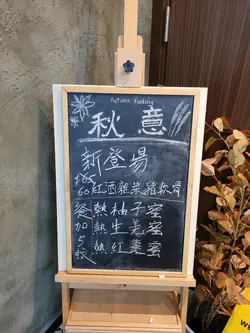 Autumn Feeling
秋意
新登場
$65
60 紅酒雜菜豬軟骨
餐 熱柚子蜜
加 熱生姜蜜
5 熱紅棗蜜
蚊